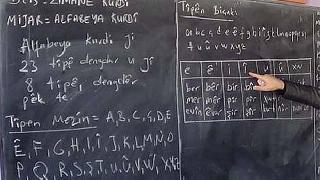 Ders: ZIMANÊ KURDÎ
MIJAR= ALFABEYA KURDÎ
Alfabeya kurdî ji
23 tîpê dengdar u ji
8 tîpê dengdêr
pêk tê
Tîpên Mezin= A, B, C, Ç, D, E
Ê, F, G, H, I, Î, J, K, L, M, N, O
P, Q, R, S, Ş, T, U, Û, V, W, X, Y, Z
Tîpên Biçûk:
a b c ç d e ê f g h i î j k l m n o p q r s
ş t u û v w x y z
e ê i î u û xw
ber bêr bir bîr
mer mêr mir mîr